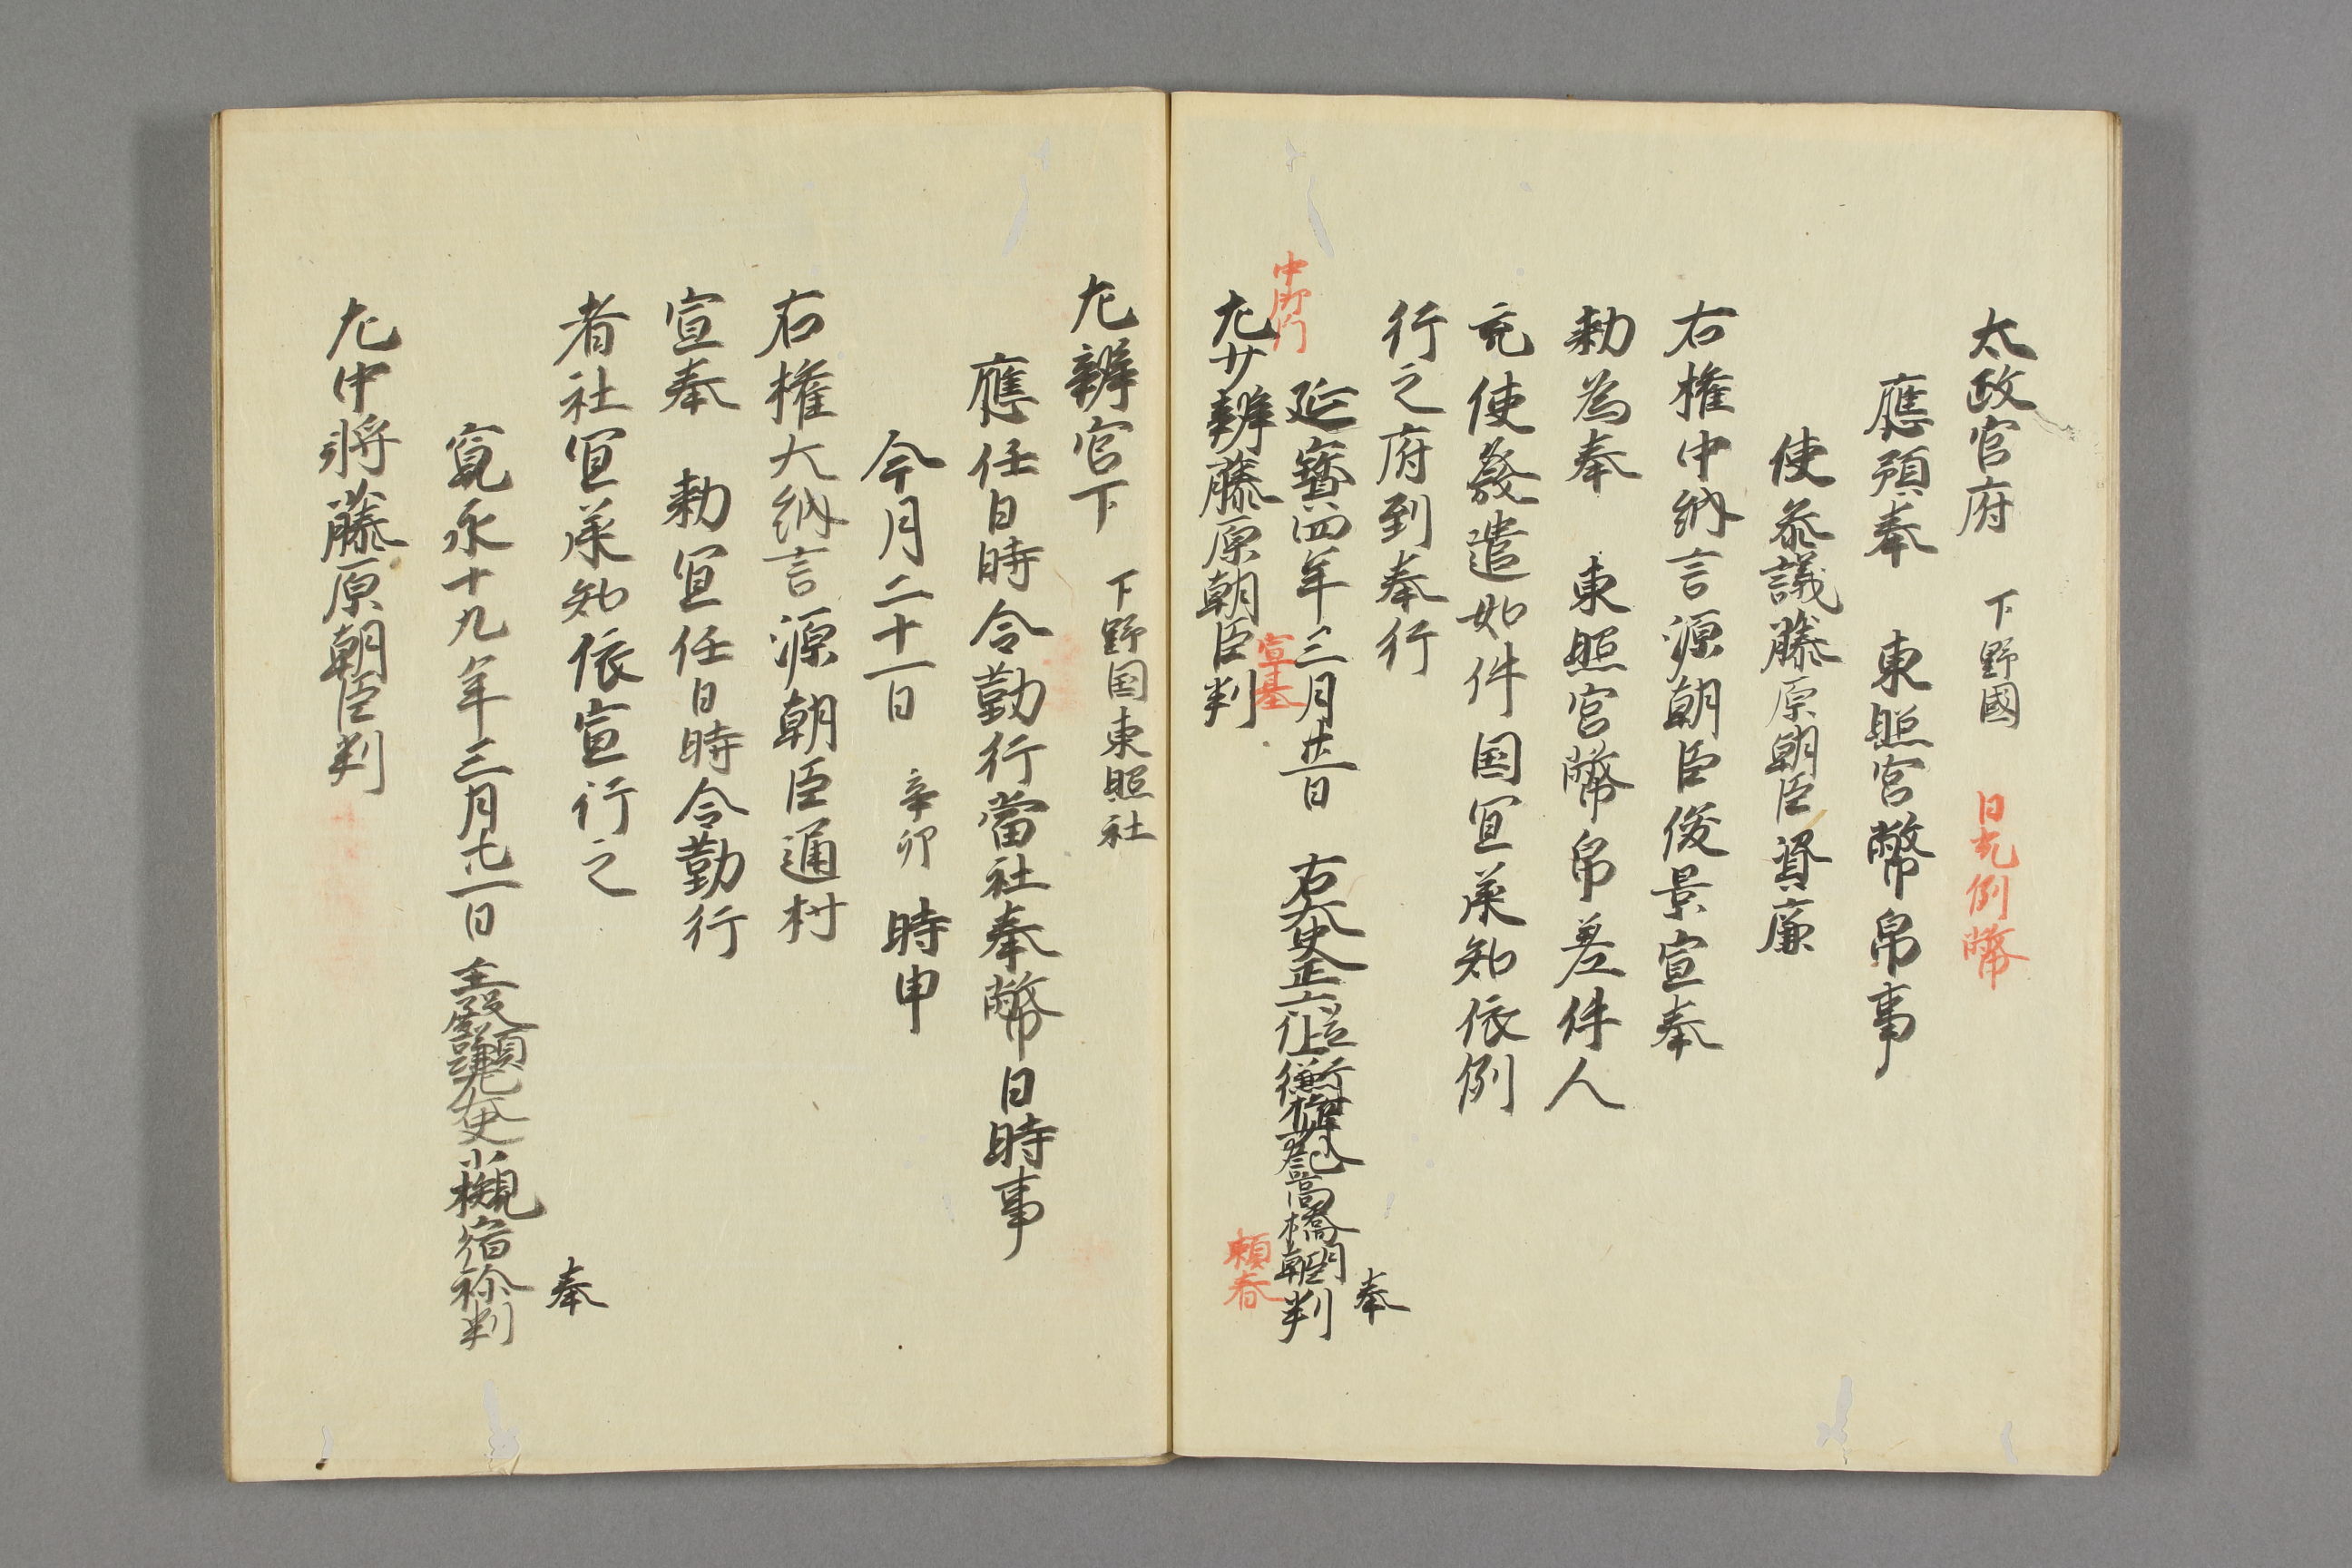 太政官府 下野國 日光例幣
應預奉 東照宮幣帛事
使参議藤原朝臣資廉
右権中納言源朝臣俊景宣奉
勅為奉 東照宮幣帛差件人
充使發遣如件国宜承知依例
行之府到奉行
延寶四年三月廿一日 右大史正六位上
奉
中御門
宣基
左少辨藤原朝臣判
頼春
左辨官下 下野国東照社
應任日時令勤行當社奉幣日時事
今月二十一日 辛卯 時申
右権大納言源朝臣通村
宣奉 勅宜任日時令勤行
者社宜承知依宣行之
寛永十九年三月廿一日 主殿頭兼左大史小槻宿祢判
奉
左中将藤原朝臣判